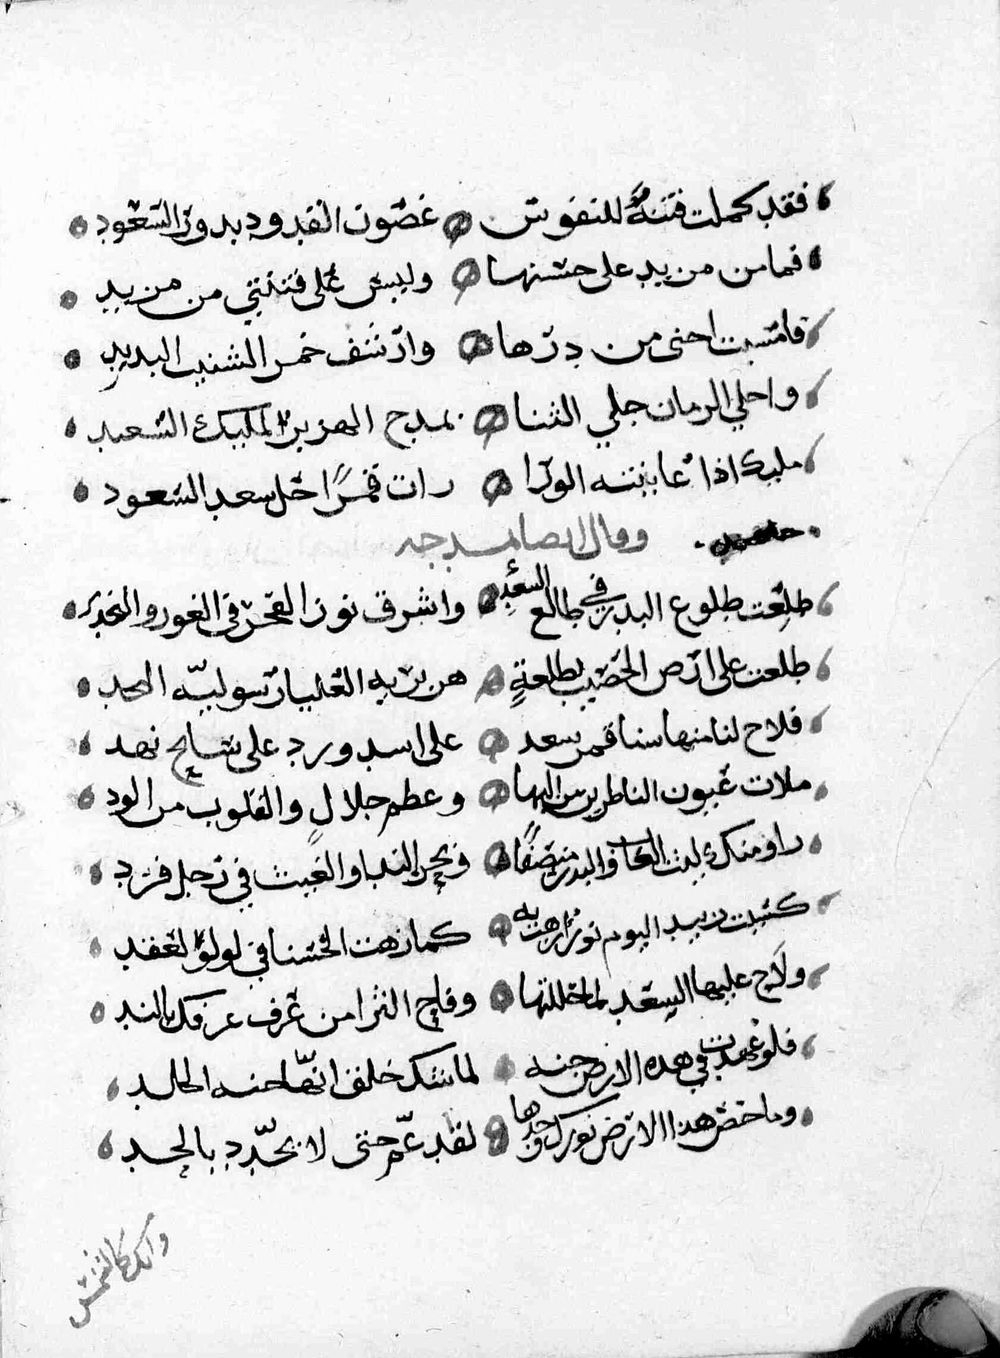 فقد كملت فتنة للنفوس غصون القدود بدور السعود
فما من مزيد على حسنها وليس على فتنتي من مزيد
فامسيت اجنى من درها وارشف خمر الشنيب البديد
واحلي الزمان بحلي الثنا بمدح الهزبر المليك السعيد
مليك اذا عاينته الورا رات قمرا حل سعد السعود
وقال ايضا يمدحه
طلعت طلوع البدر في طالع السعد واشرق نور الفجر في الغور والنجد
طلعت على ارض الخصيب بطلعة هزبريه العليا رسوليه المجد
فلاح لنا منها سنا قمر سعد على اسد ورد على سابح نهد
ملات عيون الناظرين من البها وعظم جلال والقلوب من الود
راو منك ليث الغاب والبدر منصفا وبحر الندا والغيث في رجل فرد
كسيت زبيد اليوم نورا زهت به كما زهت الحسنا في لولؤ العقد
ولاح عليها السعد لما حللتها وفاح الثرا من عرف عرفك بالند
فلو عهدت في هذه الارض جنه لما شك خلق انها جنه الخلد
وما خص هذا الارض نورك وحدها لقد عم حتى لا يحدد بالحد
وانك كالشمس